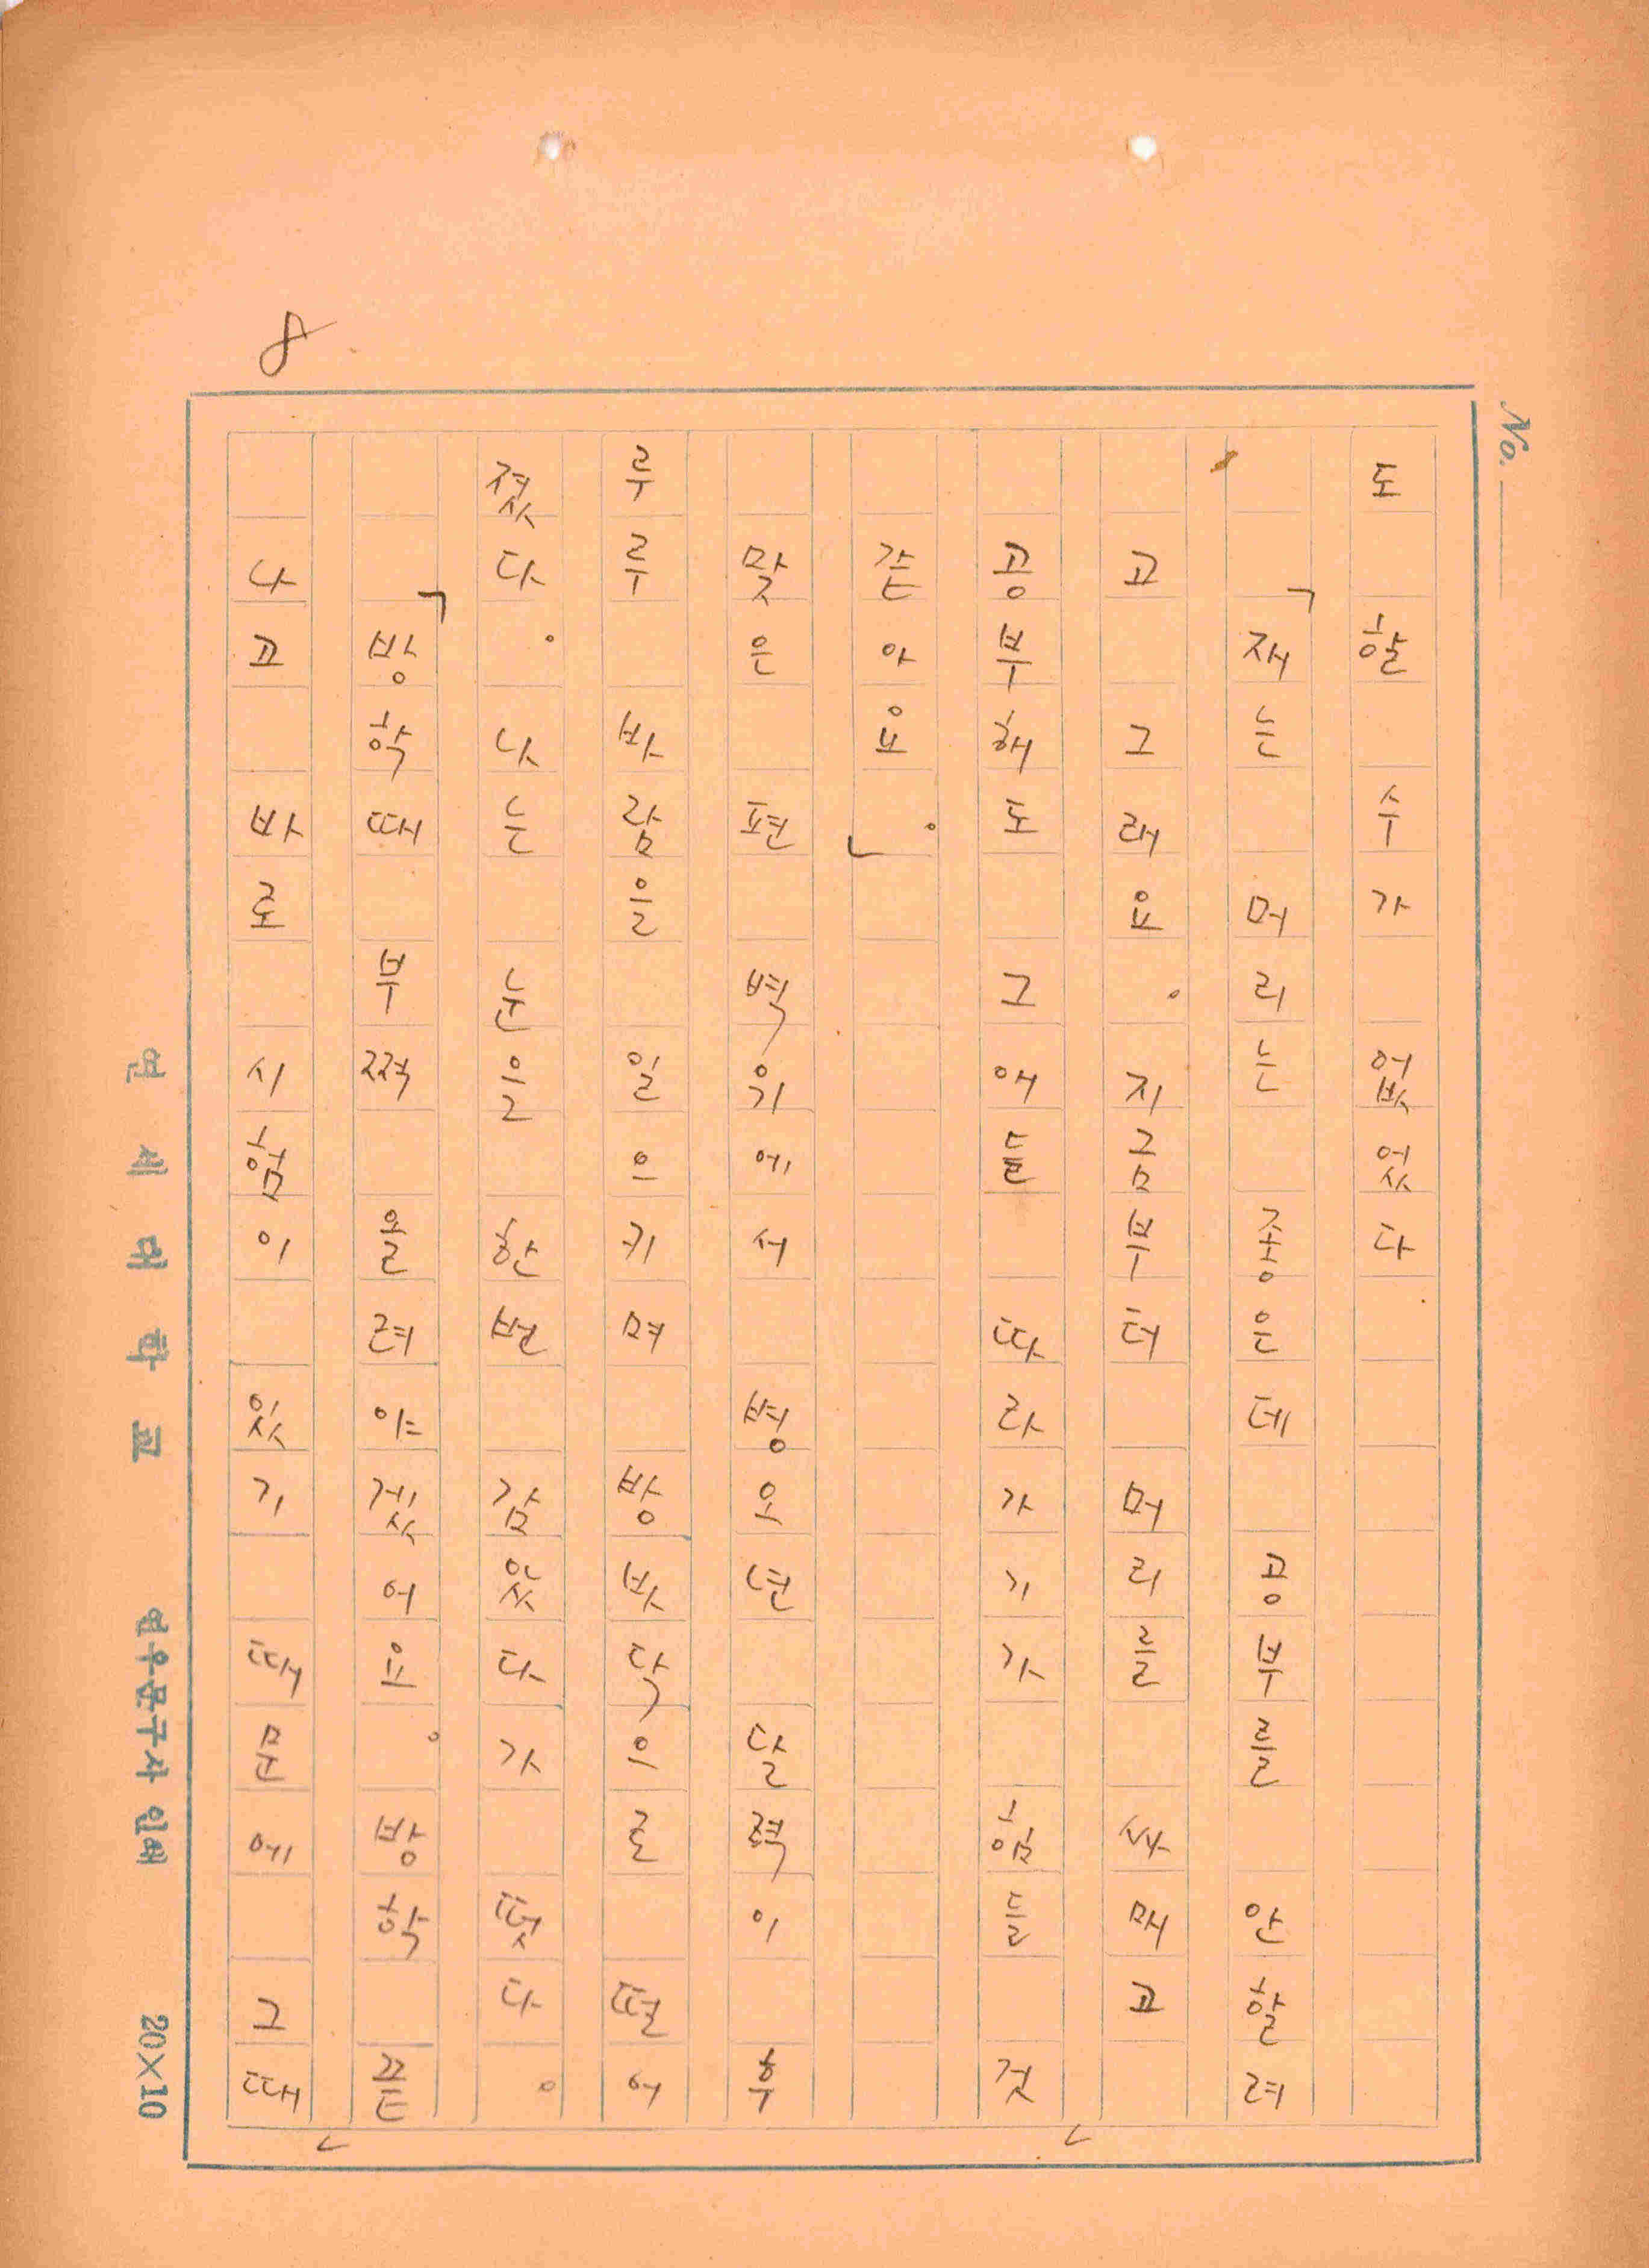 8
No.
도 할 수가 없었다
「재는 머리는 좋은데 공부를 안할려
고 그래요. 지금부터 머리를 싸매고
공부해도 그애들 따라가기가 힘들 것
같아요.」
맞은 편 벽위에서 병오년 달력이 후
루루 바람을 일으키며 방밧닥으로 떨어
졌다. 나는 눈을 한번 감았다가 떳다.
「방학때 부쩍 올려야겠어요. 방학 끝
나고 바로 시험이 있기 때문에 그때
연세대학교 연우문구사 인쇄 20×10